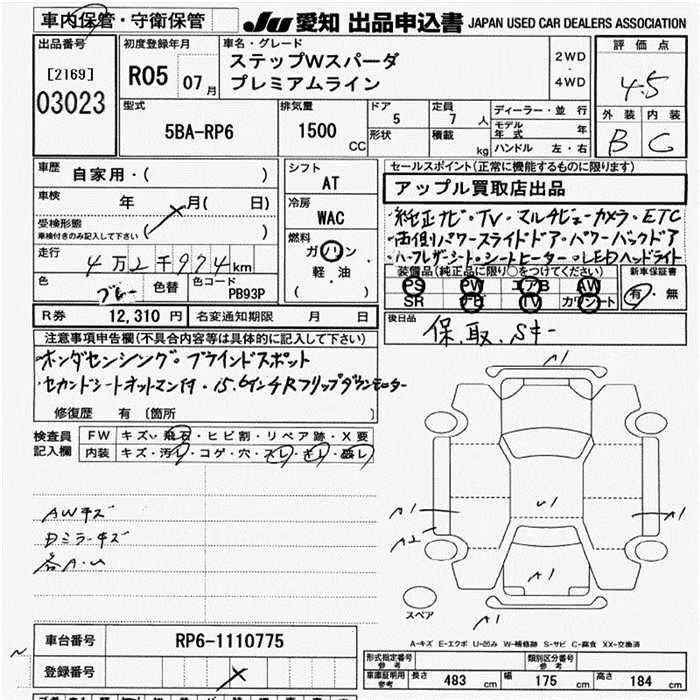 車内保管・守衛保管
JU 愛知 出品申込書 JAPAN USED CAR DEALERS ASSOCIATION
出品番号
[2169]
03023
初度登録年月
R05 07月
車名・グレード
ステップWスパーダ
プレミアムライン
2WD
・
4WD
評価点
4.5
外装 内装
B C
型式
5BA-RP6
排気量
1500
CC
ドア
5
形状
定員
7 人
積載
kg
ディーラー・並行
モデル年式 年
ハンドル 左・右
車歴
自家用・( )
車検 年 月( 日)
受検形態
車検付きのみ記入して下さい ( )
走行 4万2千974km
色 ブルー 色替 色コード PB93P
シフト
AT
冷房
WAC
燃料
ガソリン
軽・油
( )
セールスポイント(正常に機能するものに限ります)
アップル買取店出品
・純正ナビ・TV・マルチビューカメラ・ETC
・両側パワースライドドア・パワーバックドア
・ハーフレザーシート・シートヒーター・LEDヘッドライト
装備品(純正品に限り○をつけてください)
PS PW エアB AW
SR ナビ TV カワシート
新車保証書
有・無
R券 12,310 円 名変通知期限 月 日
後日品
保、取、Sキー
注意事項申告欄(不具合内容等は具体的に記入して下さい)
・ホンダセンシング・ブラインドスポット
・セカンドシートオットマン付・15.6インチRフリップダウンモニター
修復歴 有 〔箇所 〕
検査員
記入欄
FW キズ・飛石・ヒビ割・リペア跡・X要
内装 キズ・汚レ・コゲ・穴・スレ・キレ・破レ
AWキズ
Dミラーキズ
各A・U
A1
A1
A2
U1
A1
A1
A1
スペア
A-キズ E-エクボ U-凹み W-補修跡 S-サビ C-腐食 XX-交換済
車台番号 RP6-1110775
登録番号
形式指定番号
参考
類別区分番号
参考
車庫証明用
参考
長さ 483 cm 幅 175 cm 高さ 184 cm